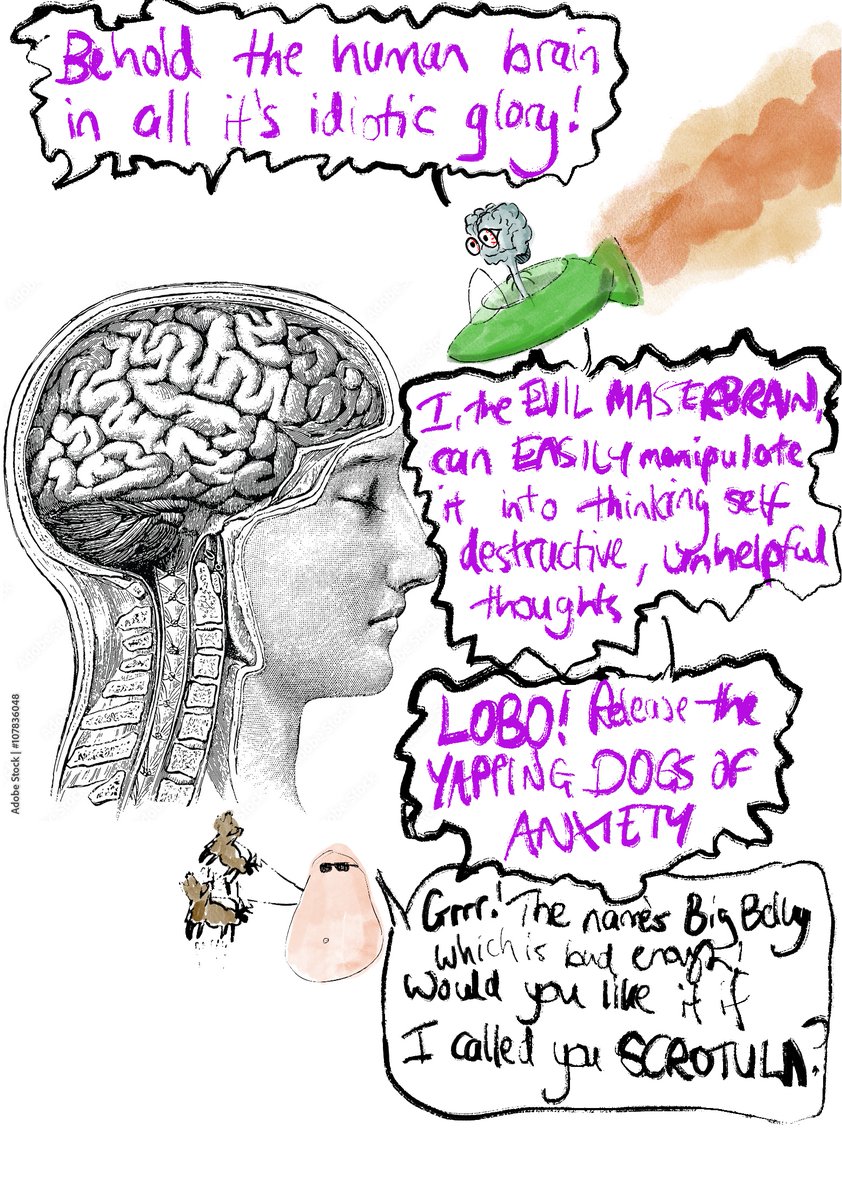 Behold the human brain
in all it's idiotic glory!
I, the EVIL MASTERBRAIN,
can EASILY manipulate
it into thinking self
destructive, unhelpful
thoughts
LOBO! Release the
YAPPING DOGS OF
ANXIETY
Grrr! The name's Big Belly
which is bad enough!
Would you like it if
I called you SCROTULA?
Adobe Stock | #107836048